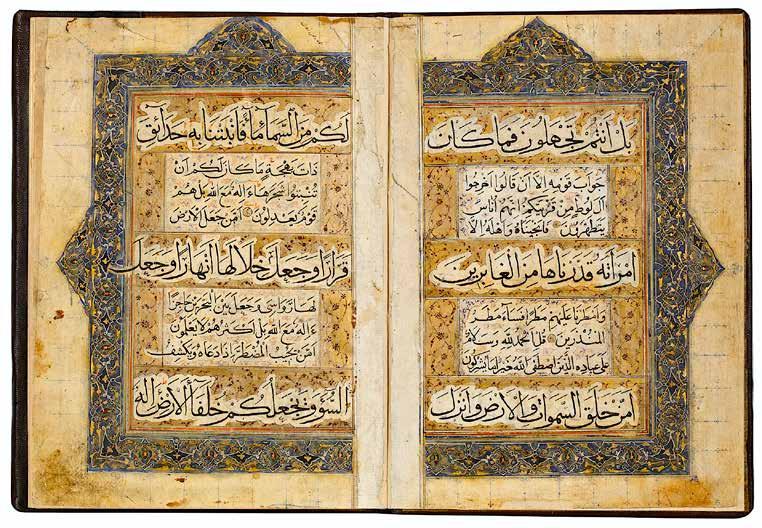 بل أنتم تجهلون فما كان
جواب قومه إلا أن قالوا أخرجوا
آل لوط من قريتكم إنهم أناس
يتطهرون فأنجيناه وأهله إلا
امرأته قدرناها من الغابرين
وأمطرنا عليهم مطرا فساء مطر
المنذرين قل الحمد لله وسلام
على عباده الذين اصطفى الله خير أما يشركون
أمن خلق السموات والأرض وأنزل
لكم من السماء ماء فأنبتنا به حدائق
ذات بهجة ما كان لكم أن
تنبتوا شجرها ءإله مع الله بل هم
قوم يعدلون أمن جعل الأرض
قرارا وجعل خلالها أنهارا وجعل
لها رواسي وجعل بين البحرين حاجزا
ءإله مع الله بل أكثرهم لا يعلمون
أمن يجيب المضطر إذا دعاه ويكشف
السوء ويجعلكم خلفاء الأرض ءإله